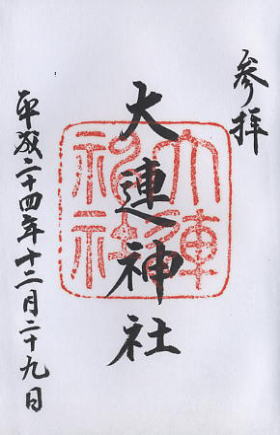 参拝
大連神社
大連神社
平成二十四年十二月二十九日